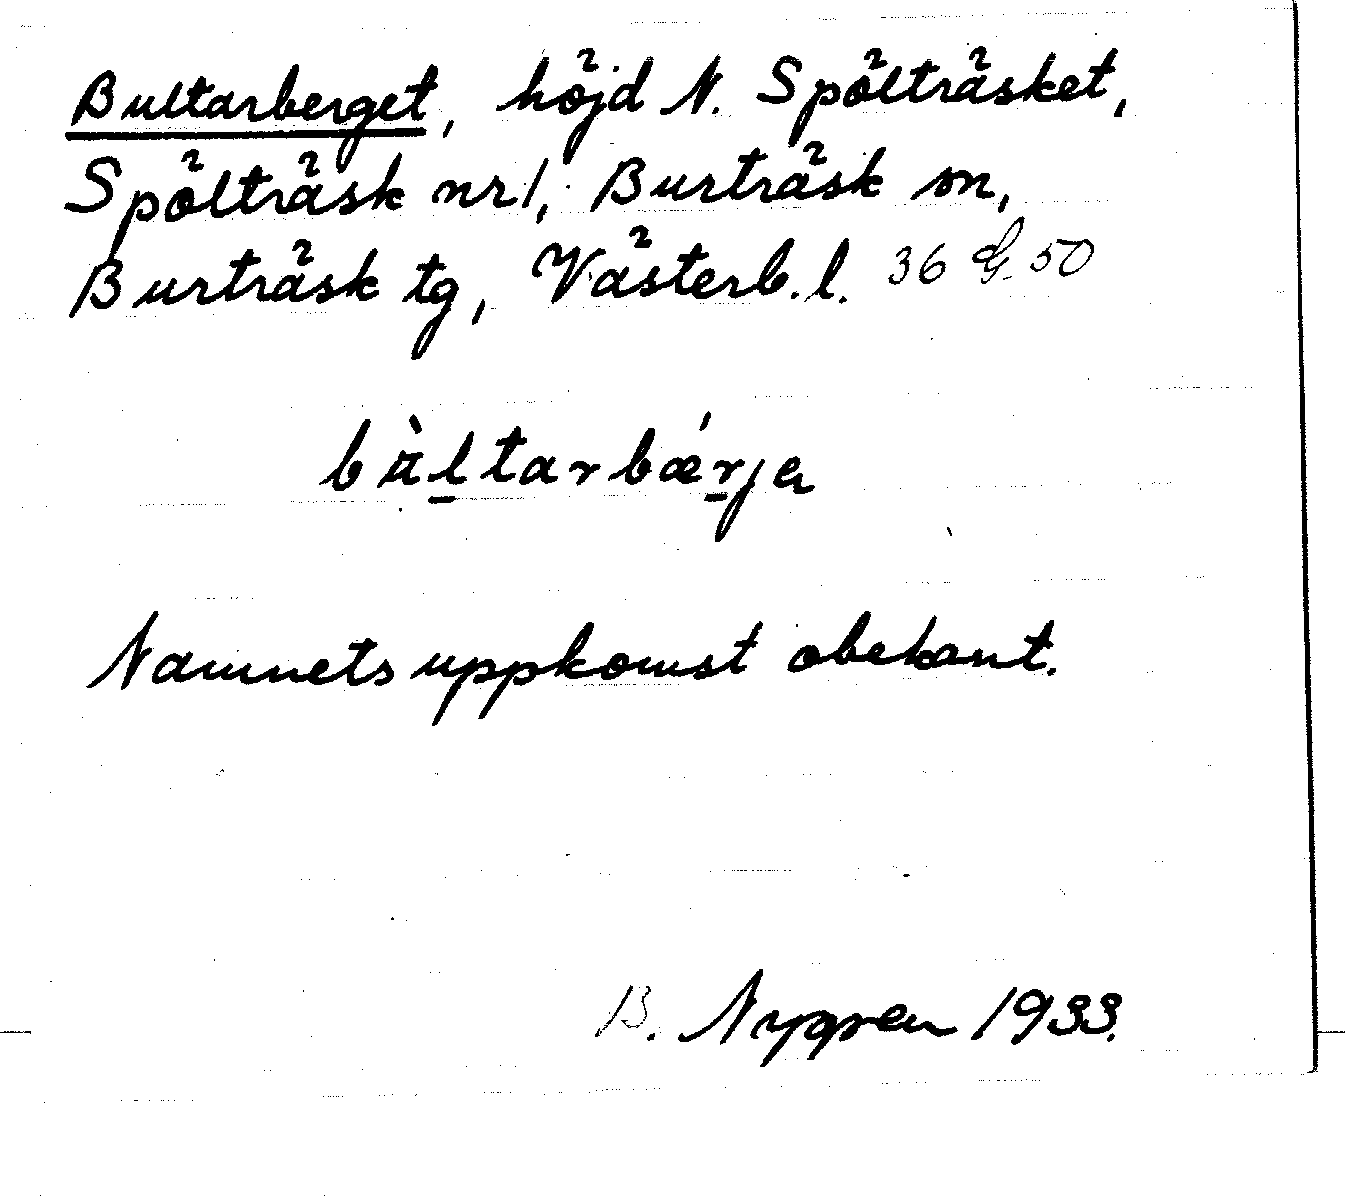 Bultarberget, höjd N. Spölträsket,
Spölträsk nr 1, Burträsk sn,
Burträsk tg, Västerb. l. 36 50
Namnets uppkomst obekant.
B. Nygren 1933.